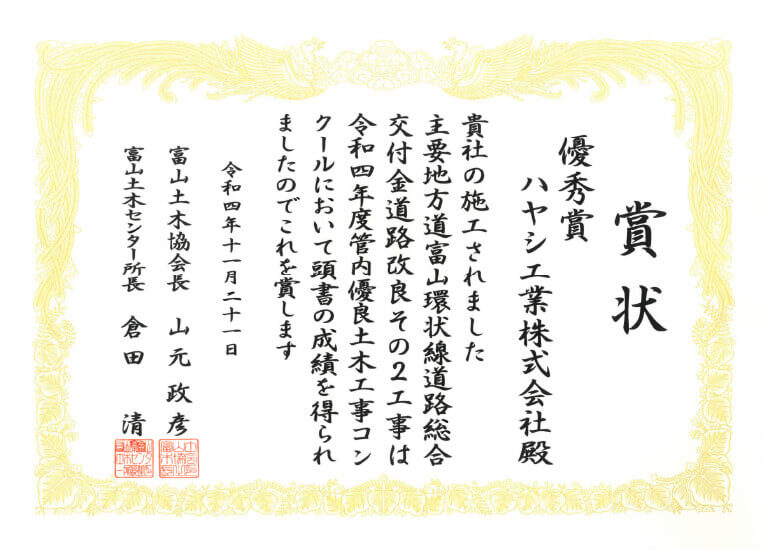 賞状
優秀賞
ハヤシ工業株式会社殿
貴社の施工されました
主要地方道富山環状線道路総合
交付金道路改良その2工事は
令和四年度管内優良土木工事コン
クールにおいて頭書の成績を得られ
ましたのでこれを賞します
令和四年十一月二十一日
富山土木協会長 山元政彦
富山土木センター所長 倉田清